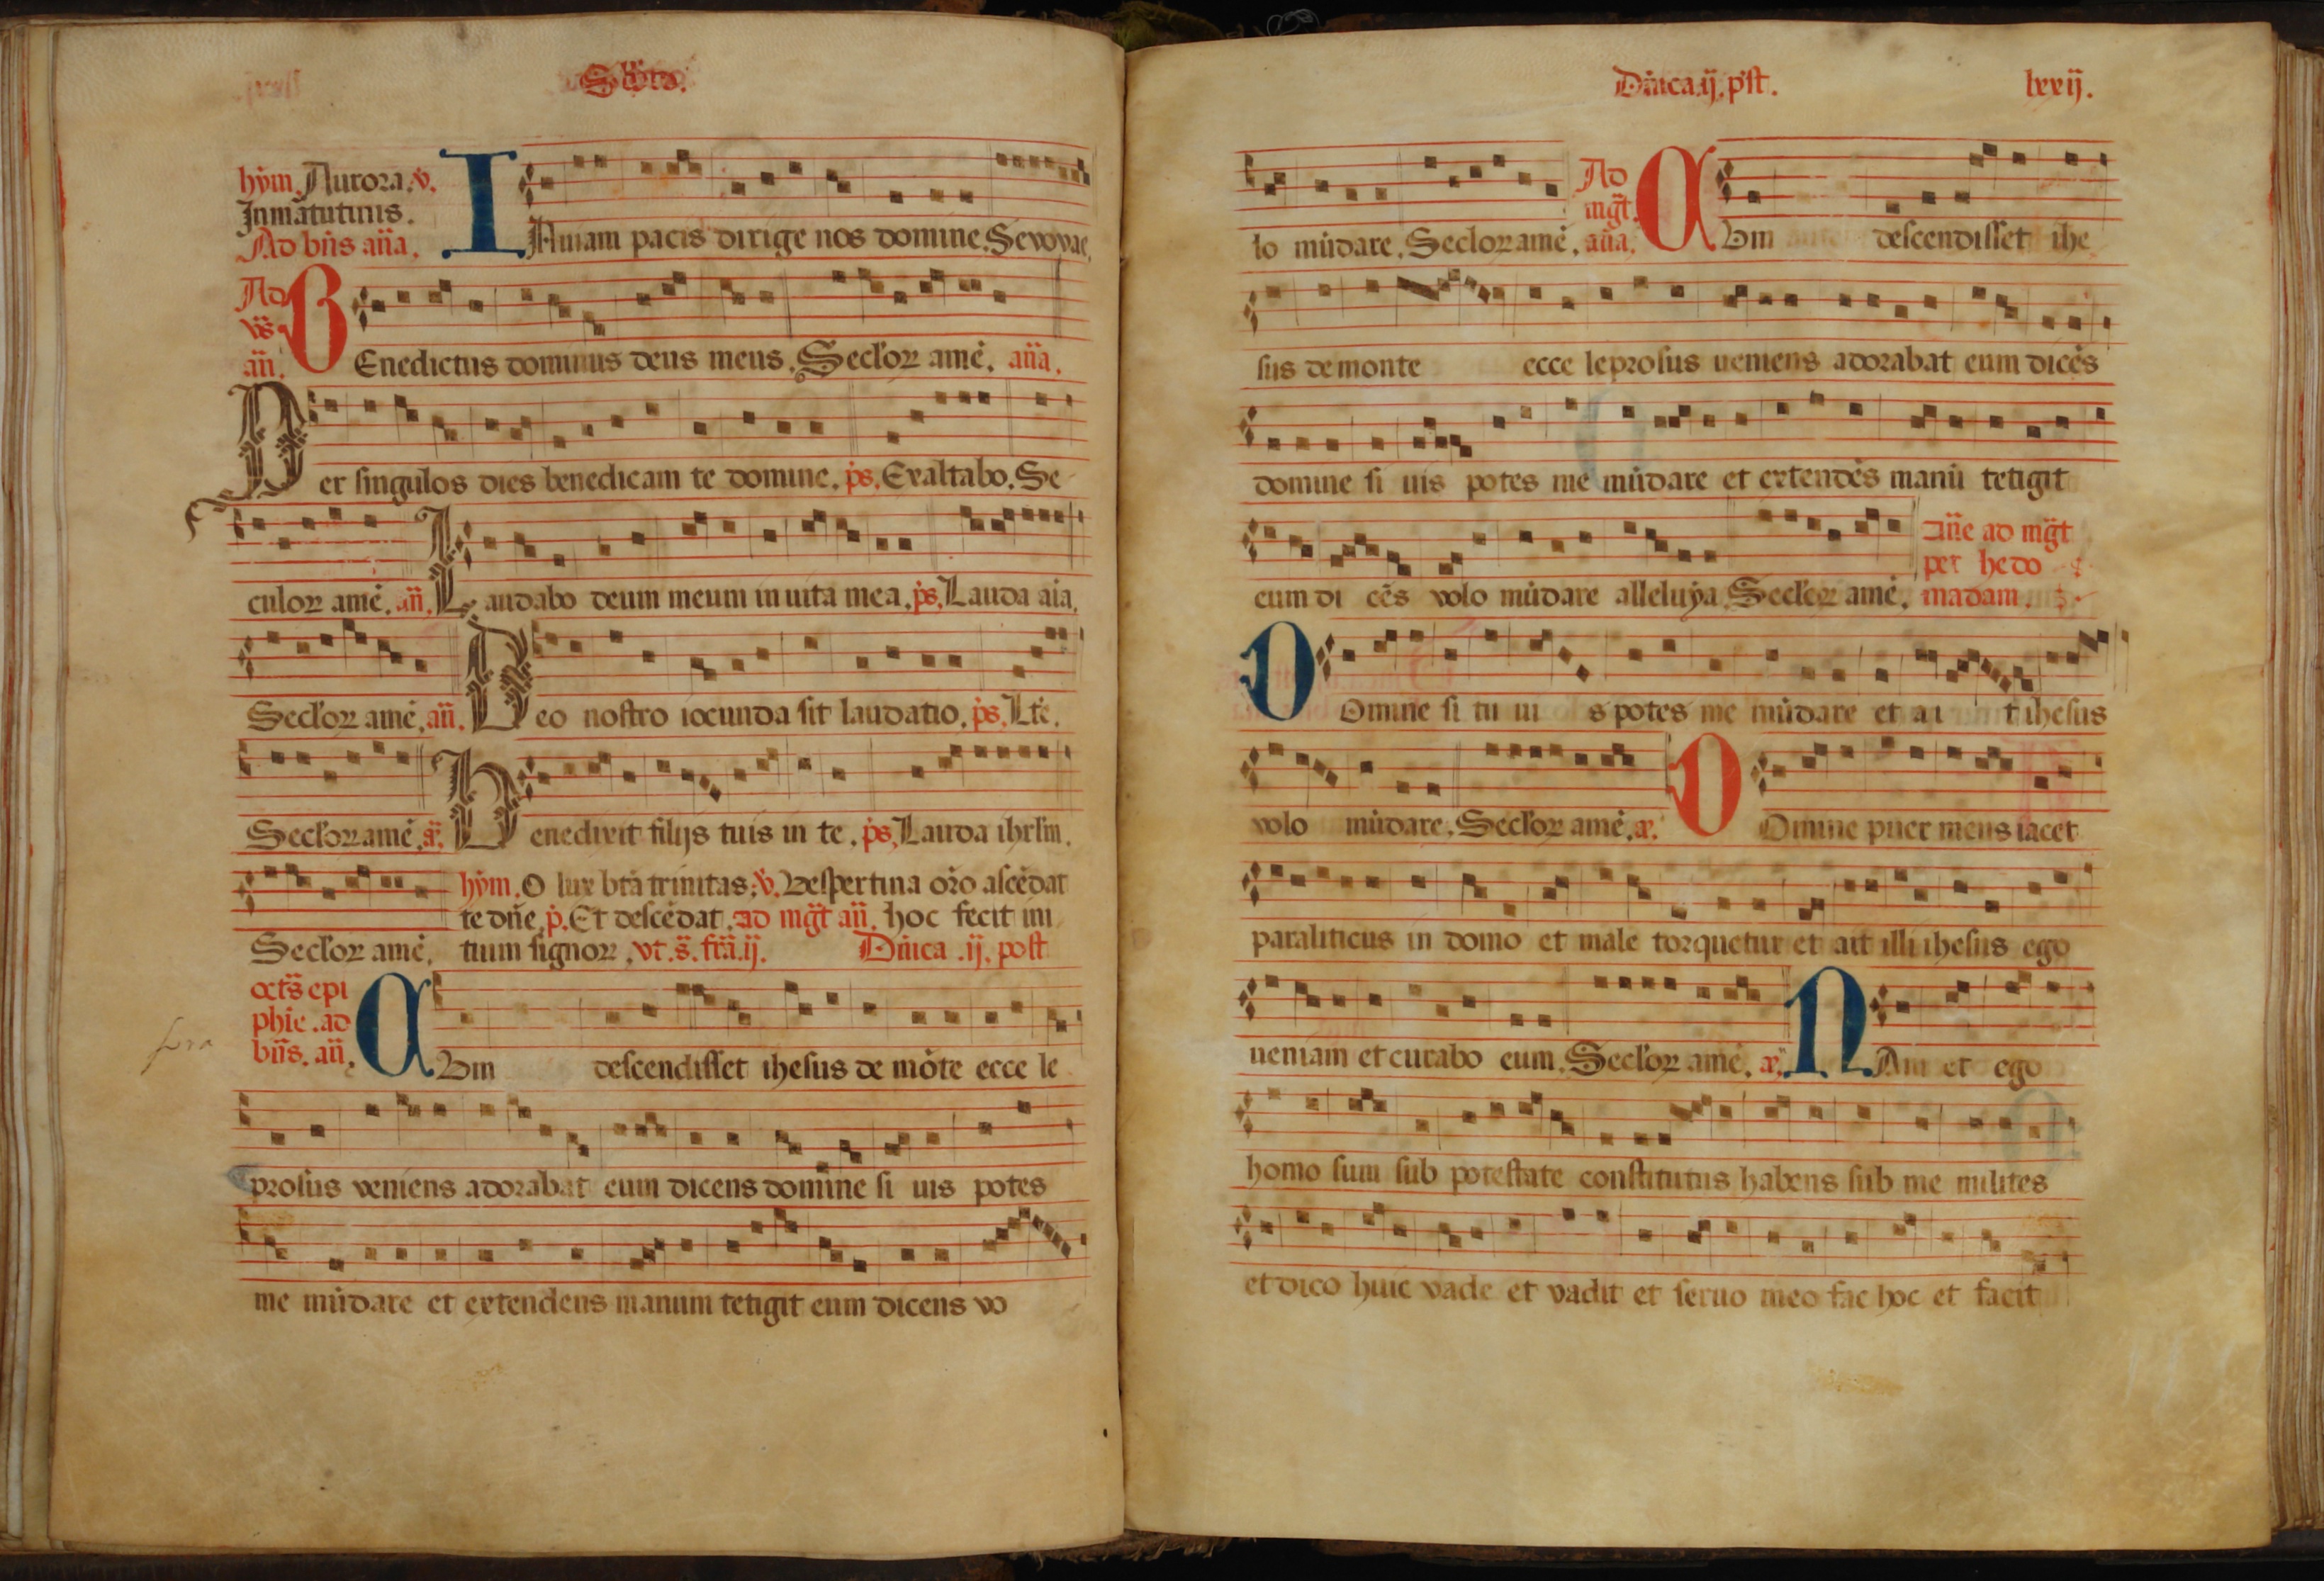 Sabbto.
hym. Aurora. v.
In matutinis.
Ad bn̄s an̄a.
IN uiam pacis dirige nos domine. Seuouae.
Ad
vs̄
an̄.
BEnedictus dominus deus meus. Seclor amē. an̄a.
Per singulos dies benedicam te domine. ps. Exaltabo. Se
culor amē. an̄. Laudabo deum meum in uita mea. ps. Lauda aīa.
Seclor amē. an̄. Deo nostro iocunda sit laudatio. ps. Lte.
Seclor amē. a. Benedixit filijs tuis in te. ps. Lauda ihrlm.
hym. O lux btā trinitas. v. Vespertina orō ascēdat
te dn̄e. p. Et descēdat. ad mḡt an̄. hoc fecit ini
Seclor amē. tium signor. vt. s̄. fr̄a. ij. Dn̄ica .ij. post
octs̄ epi
phīe. ad
bn̄s. an̄.
CVm descendisset ihesus de mōte ecce le
prosus veniens adorabat eum dicens domine si uis potes
me mūdare et extendens manum tetigit eum dicens vo
Dn̄ica .ij. p̄st. lxxij.
lo mūdare. Seclor amē.
Ad
mḡt.
an̄a.
CVm descendisset ihe
sus de monte ecce leprosus ueniens adorabat eum dicēs
domine si uis potes me mūdare et extendēs manū tetigit
eum di cēs volo mūdare alleluya. Seclor amē.
an̄e ad mḡt
per hedo
madam.
DOmine si tu ui s potes me mūdare et ai t ihesus
volo mūdare. Seclor amē. a. DOmine puer meus iacet
paraliticus in domo et male torquetur et ait illi ihesus ego
ueniam et curabo eum. Seclor amē. a. NAm et ego
homo sum sub potestate constitutus habens sub me milites
et dico huic vade et vadit et seruo meo fac hoc et facit